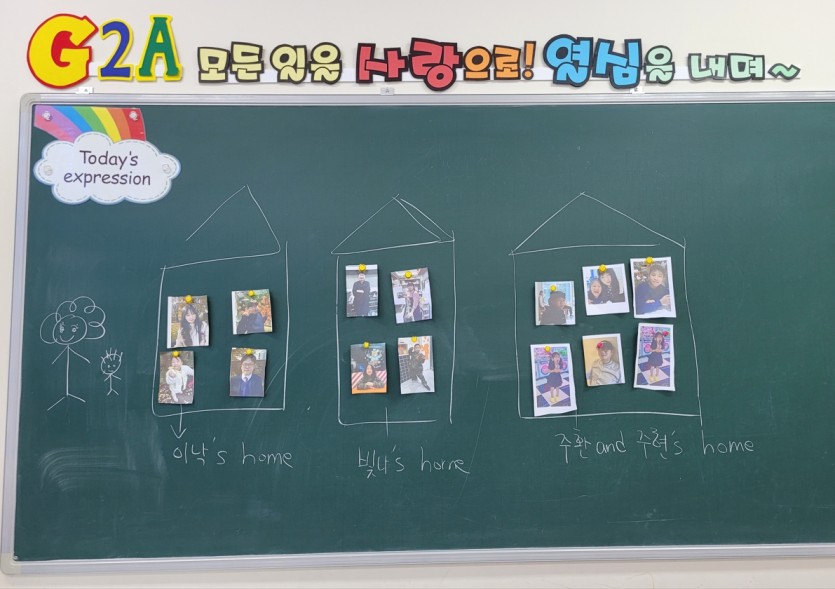 G2A 모든 일을 사랑으로! 열심을 내며~
Today's
expression
이낙's home
빛나's home
주환 and 주현's home